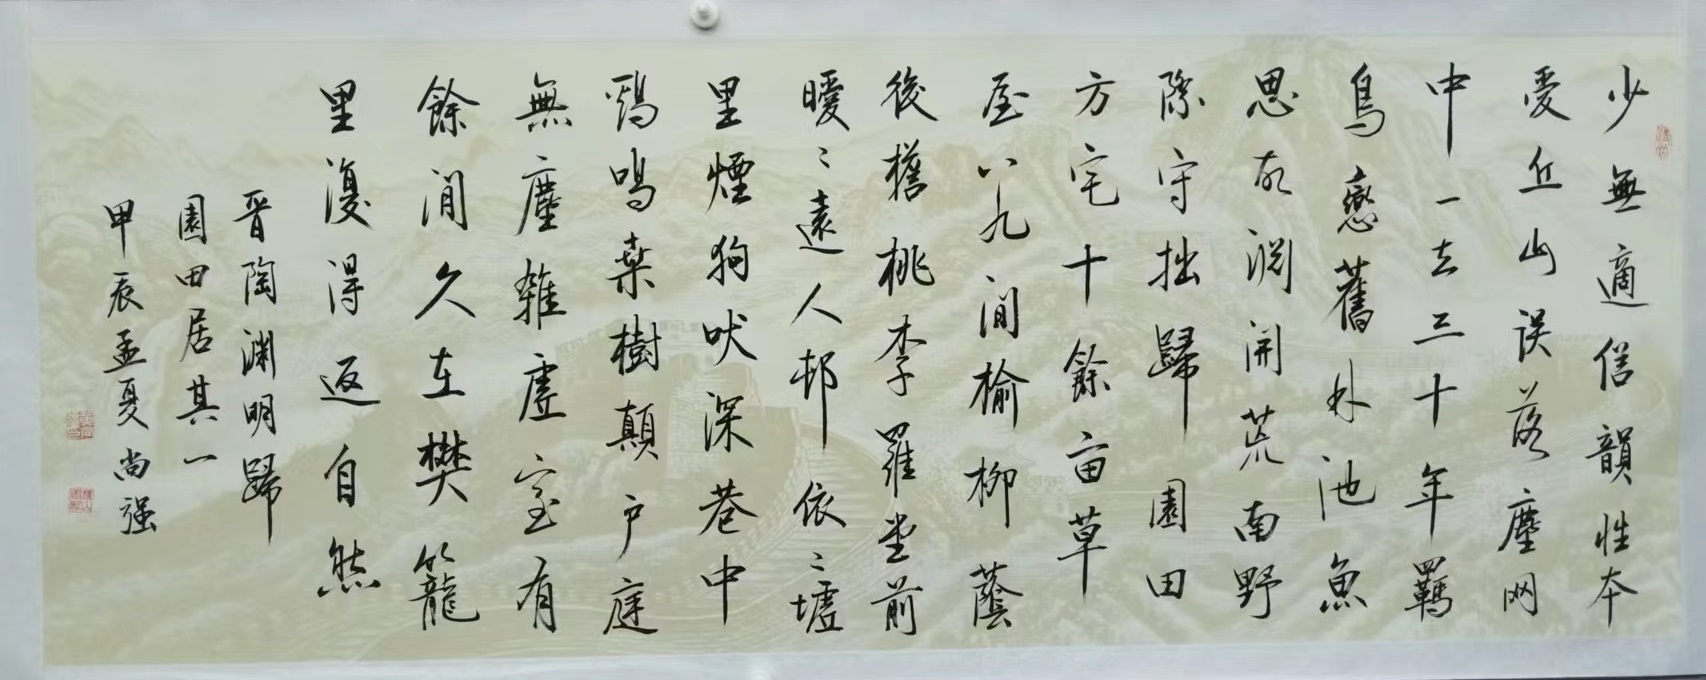 少無適俗韻性本
愛丘山误落塵网
中一去三十年羈
鳥戀舊林池魚
思故淵開荒南野
際守拙歸園田
方宅十餘亩草
屋八九间榆柳蔭
後檐桃李羅堂前
曖〻遠人邨依〻墟
里煙狗吠深巷中
鷄鳴桑樹顛户庭
無塵雜虛室有
餘闲久在樊籠
里復得返自然
晉陶渊明歸
園田居其一
甲辰孟夏尚强